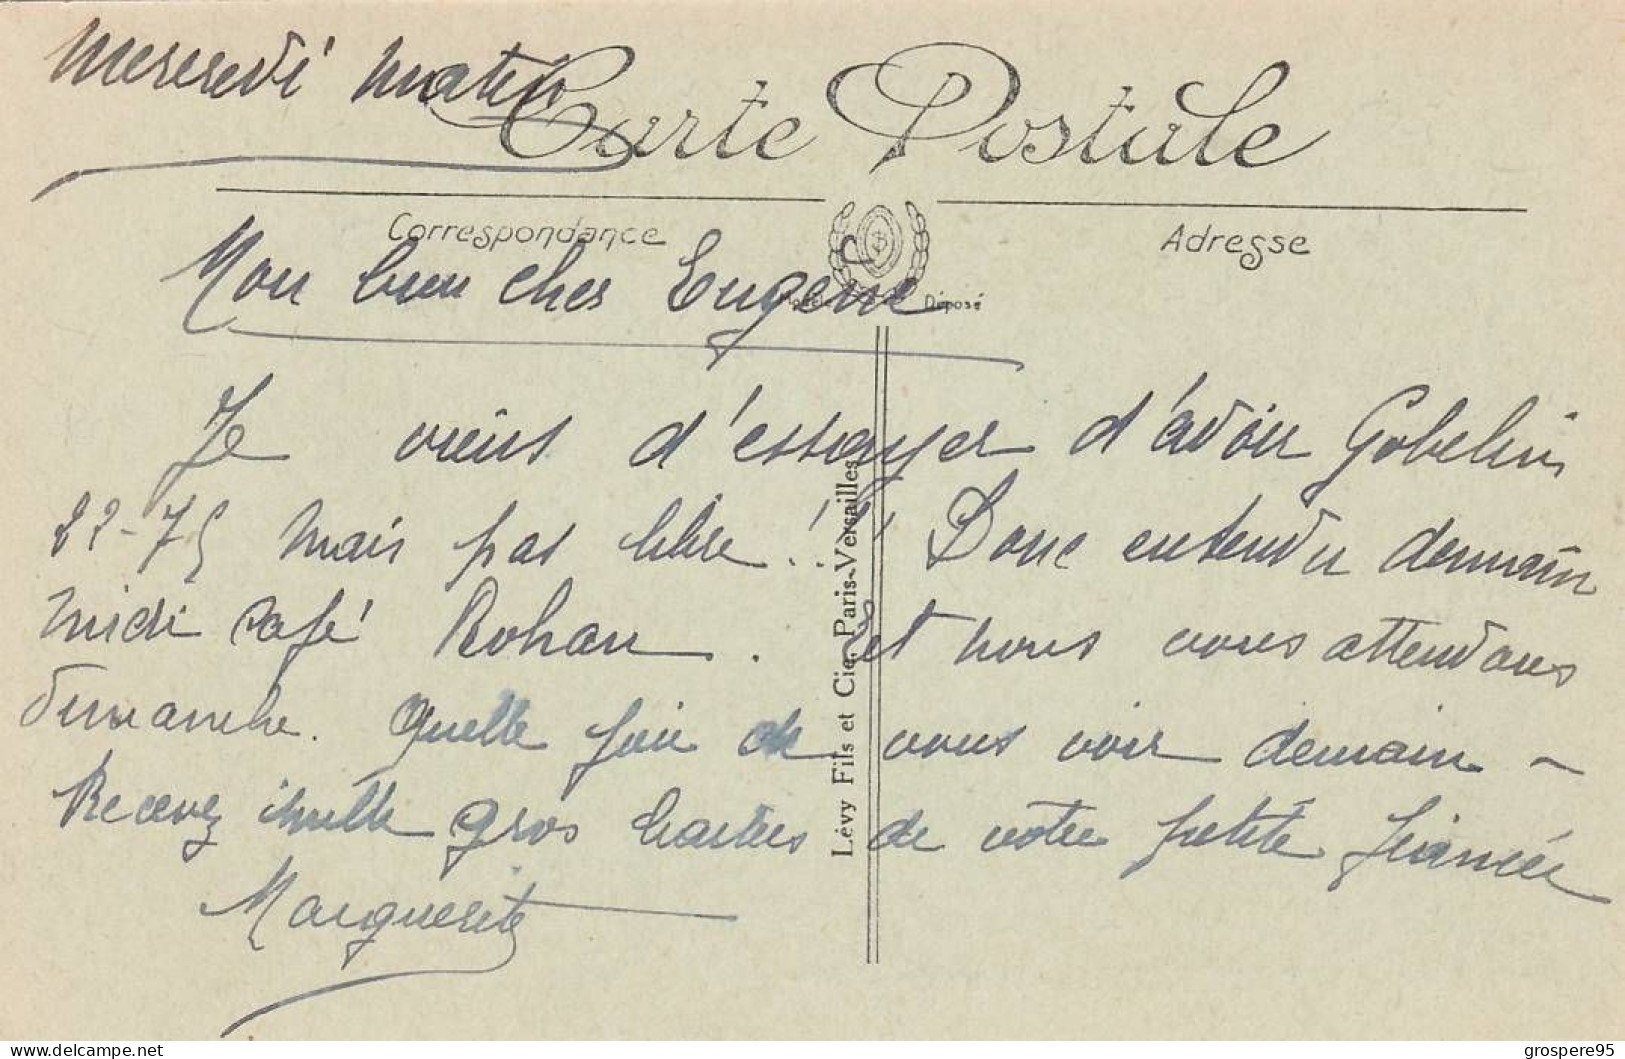 Mercredi matin
Carte Postale
Correspondance
Adresse
Mon bien cher Eugène
Déposé
Je viens d'essayer d'avoir Gobelin
22-75 mais pas libre!!! Donc entendu demain
midi café Rohan. Et nous vous attendons
dimanche. Quelle joie de vous voir demain -
Recevez mille gros baisers de votre petite fiancée
Marguerite
Lévy Fils et Cie, Paris-Versailles
delcampe.net
grospere95